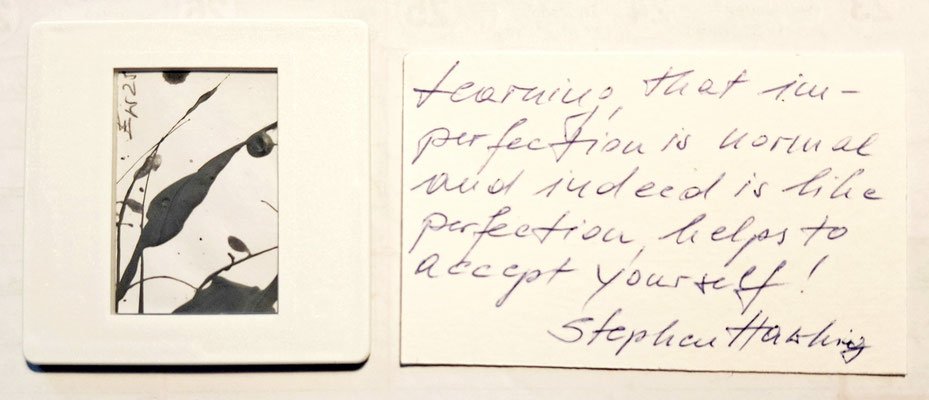 Learning, that im-
perfection is normal
and indeed is like
perfection, helps to
accept yourself!
Stephen Hawking